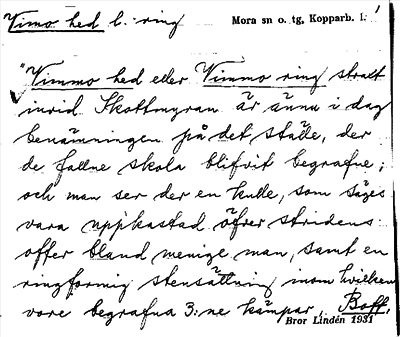 Vimo hed l. ring
Mora sn o. tg, Kopparb. l.
"Vimmo hed eller Vimmo ring stralt
invid Skottmyran är ännu i dag
benämningen på det ställe, der
de fallne skola blifvit begrafne;
och man ser der en kulle, som säges
vara uppkastad öfver stridens
offer bland menige man, samt en
ringformig stensättning inom hvilken
vore begrafna 3:ne kämpar. Boff,
Bror Lindén 1931